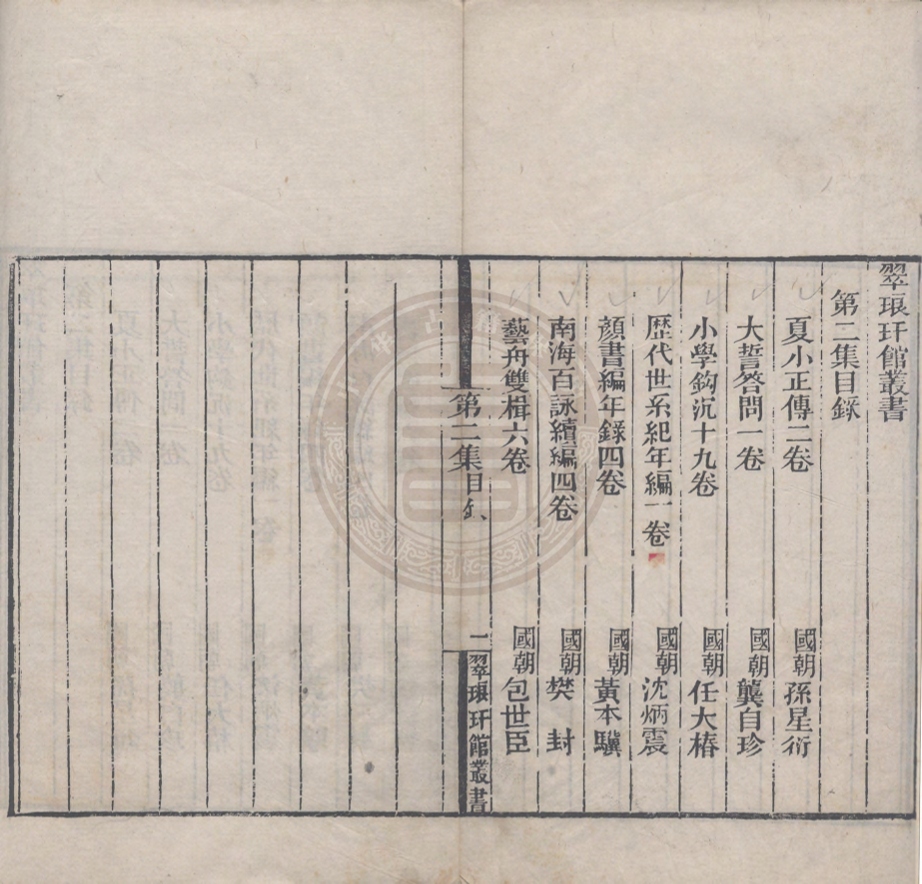 翠琅玕館叢書
第二集目錄
夏小正傳二卷 國朝孫星衍
大誓答問一卷 國朝龔自珍
小學鈎沉十九卷 國朝任大椿
歷代世系紀年編一卷 國朝沈炳震
顏書編年錄四卷 國朝黃本驥
南海百詠續編四卷 國朝樊 封
藝舟雙楫六卷 國朝包世臣
第二集目 一 翠琅玕館叢書